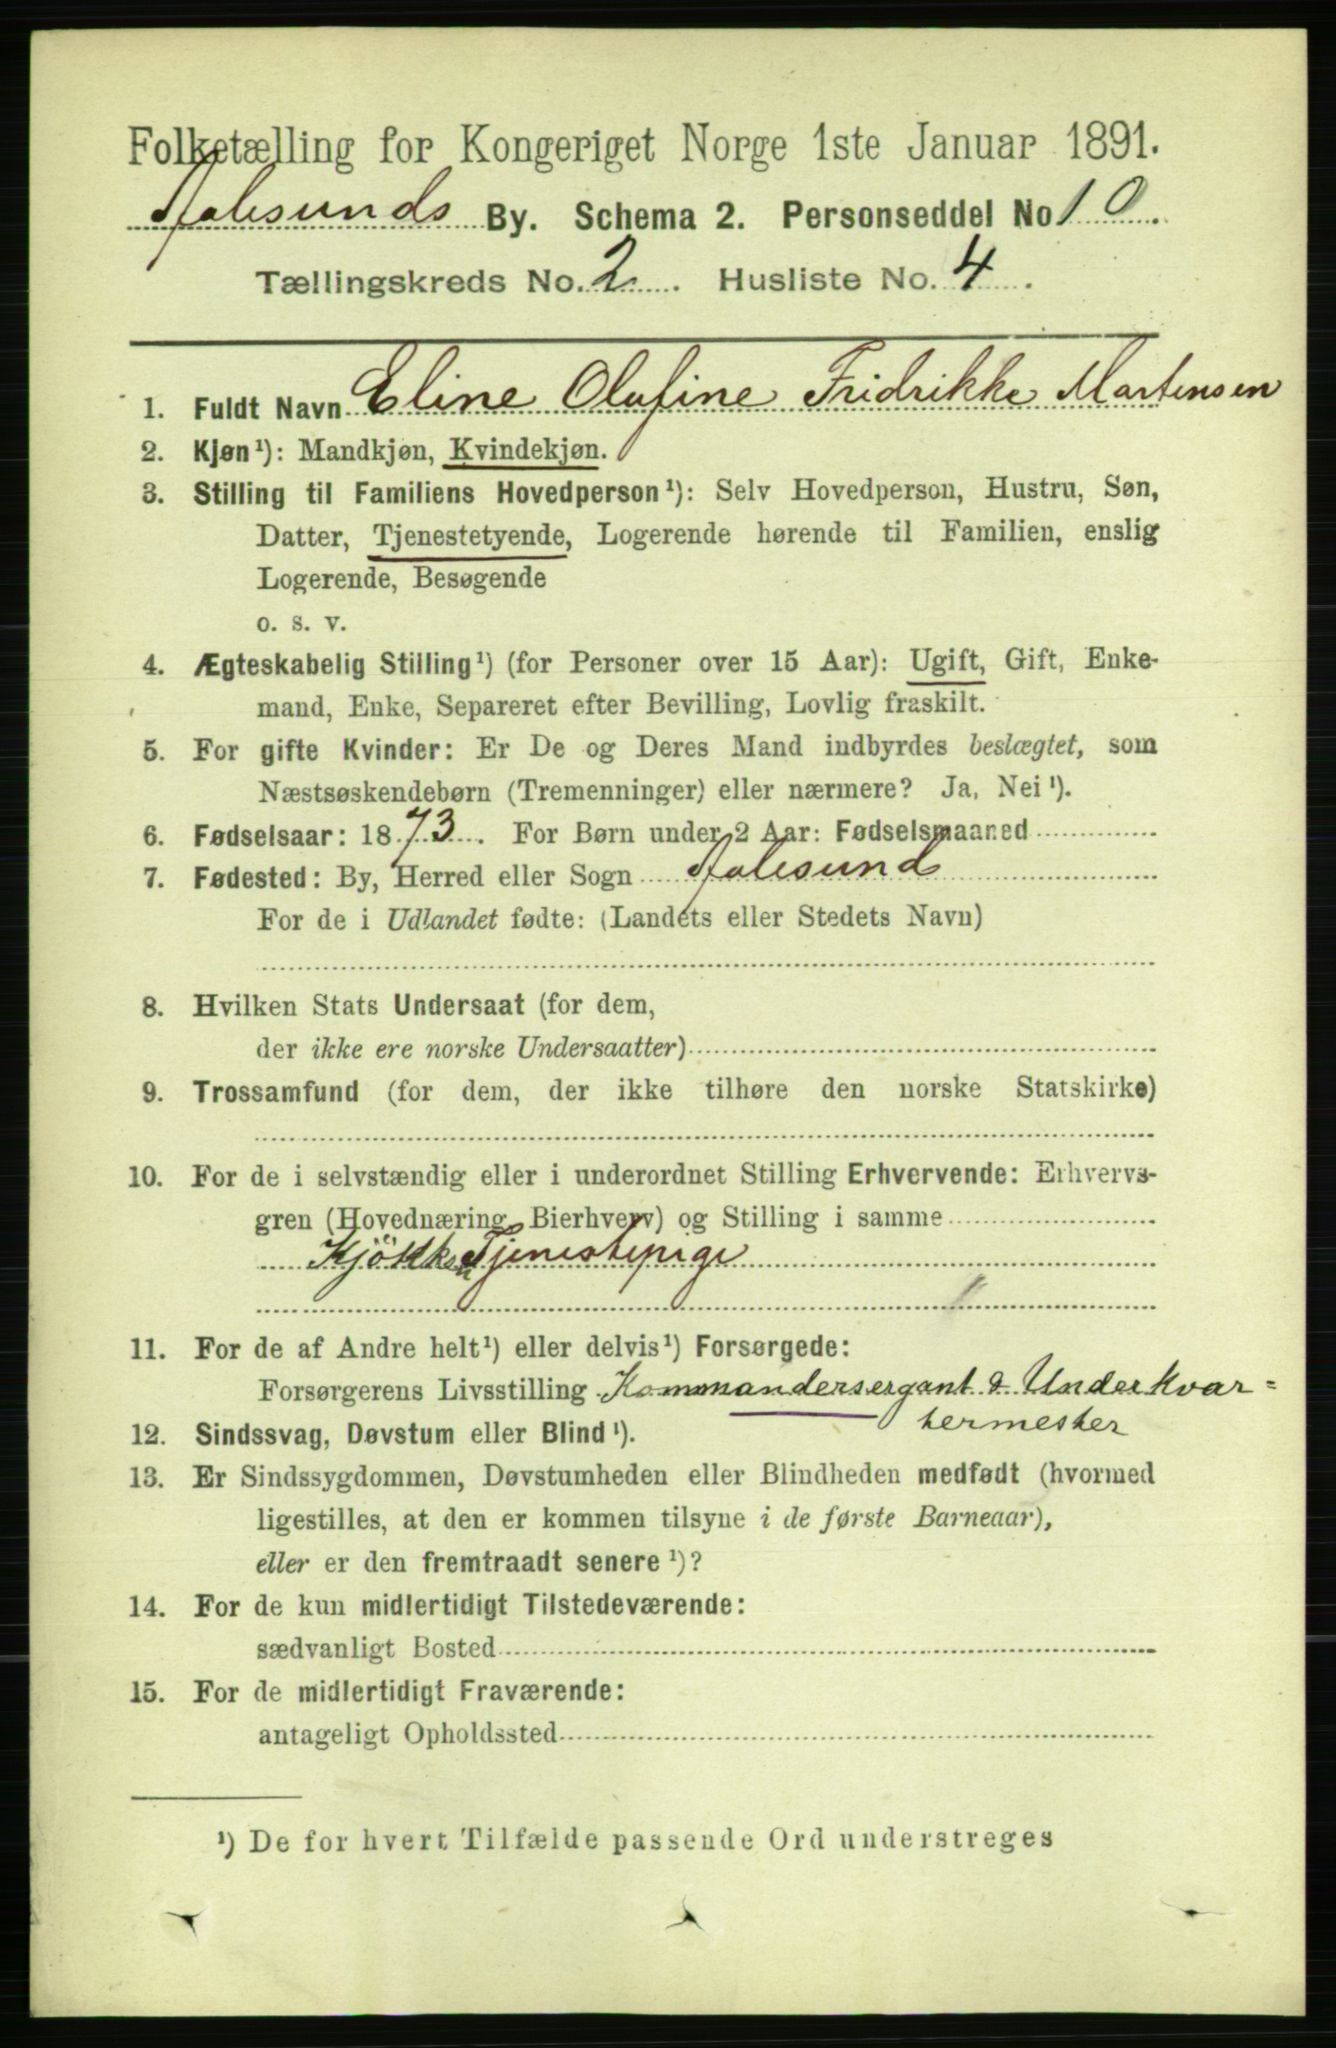 Folketælling for Kongeriget Norge 1ste Januar 1891.
Aalesunds By. Schema 2. Personseddel No 10.
Tællingskreds No. 2. Husliste No. 4.
1. Fuldt Navn Eline Olufine Fridrikke Martensen
2. Kjøn¹): Mandkjøn, Kvindekjøn.
3. Stilling til Familiens Hovedperson¹): Selv Hovedperson, Hustru, Søn,
Datter, Tjenestetyende, Logerende hørende til Familien, enslig
Logerende, Besøgende
o. s. v.
4. Ægteskabelig Stilling¹) (for Personer over 15 Aar): Ugift, Gift, Enke-
mand, Enke, Separeret efter Bevilling, Lovlig fraskilt.
5. For gifte Kvinder: Er De og Deres Mand indbyrdes beslægtet, som
Næstsøskendebørn (Tremenninger) eller nærmere? Ja, Nei¹).
6. Fødselsaar: 1873. For Børn under 2 Aar: Fødselsmaaned
7. Fødested: By, Herred eller Sogn Aalesund
For de i Udlandet fødte: (Landets eller Stedets Navn)
8. Hvilken Stats Undersaat (for dem,
der ikke ere norske Undersaatter)
9. Trossamfund (for dem, der ikke tilhøre den norske Statskirke)
10. For de i selvstændig eller i underordnet Stilling Erhvervende: Erhvervs-
gren (Hovednæring, Bierhverv) og Stilling i samme
Kjökken Tjenestepige
11. For de af Andre helt¹) eller delvis¹) Forsørgede:
Forsørgerens Livsstilling Kommandersergant & Underkvar=
termester
12. Sindssvag, Døvstum eller Blind¹).
13. Er Sindssygdommen, Døvstumheden eller Blindheden medfødt (hvormed
ligestilles, at den er kommen tilsyne i de første Barneaar),
eller er den fremtraadt senere¹)?
14. For de kun midlertidigt Tilstedeværende:
sædvanligt Bosted
15. For de midlertidigt Fraværende:
antageligt Opholdssted
¹) De for hvert Tilfælde passende Ord understreges